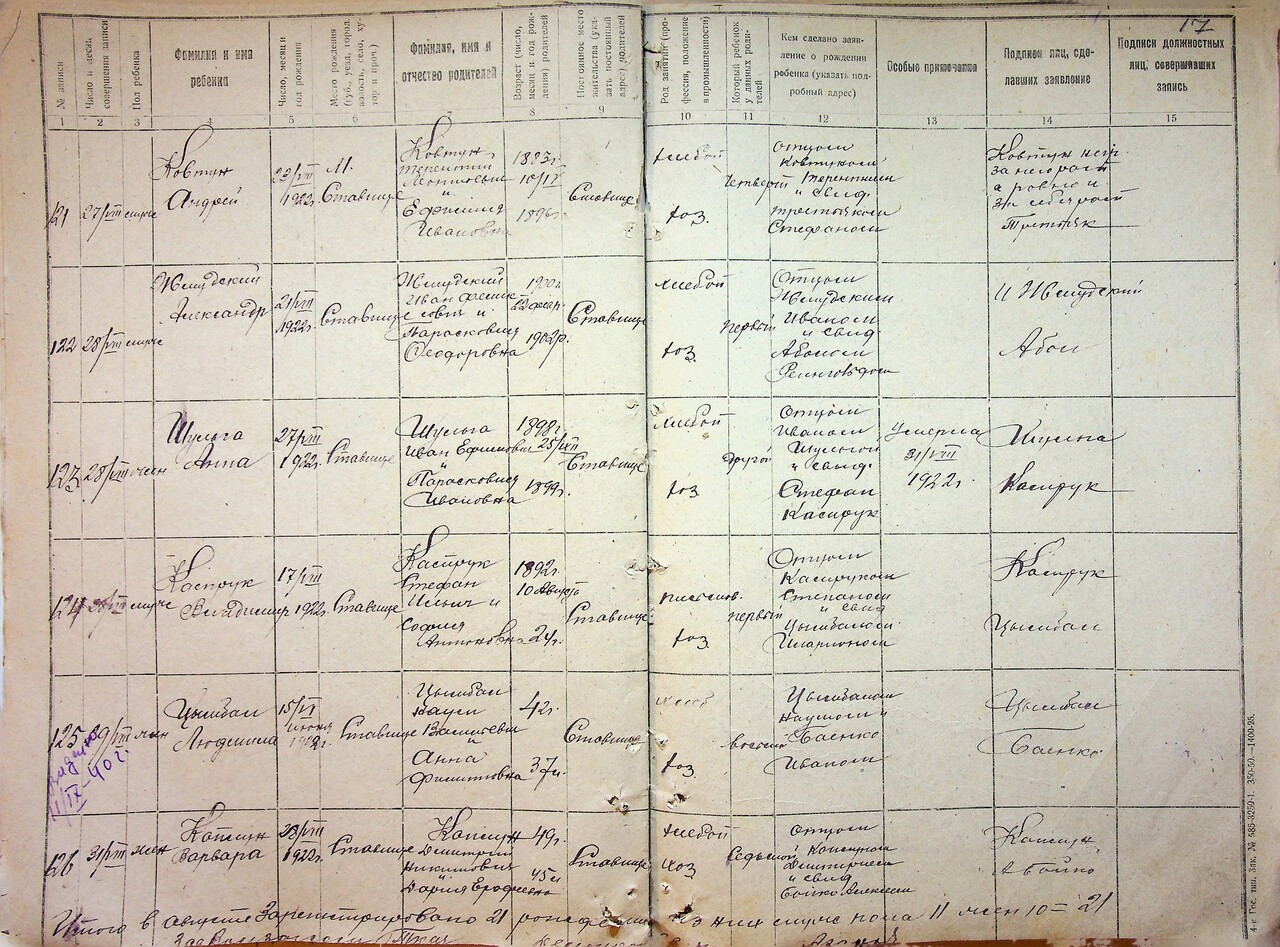 17
№ записи
Число и месяц совершения записи
Пол ребенка
Фамилия и имя
ребенка
Число, месяц и
год рождения
Место рождения
(губ., уезд, город,
волость, село, ху-
тор и проч.)
Фамилия, имя и
отчество родителей
Возраст (число,
месяц и год рож-
дения) родителей
Постоянное место
жительства (ука-
зать постоянный
адрес) родителей
Род занятий (про-
фессия, положение
в промышленности)
Который ребенок
у данных роди-
телей
Кем сделано заяв-
ление о рождении
ребенка (указать под-
робный адрес)
Особые примечания
Подписи лиц, сде-
лавших заявление
Подписи должностных
лиц, совершивших
запись
1 2 3 4 5 6 7 8 9 10 11 12 13 14 15
121 27/VIII мужс
Ковтун
Андрей
23/VIII
1922г.
М.
Ставище
Ковтун
Терентий
Леонтьевич
и
Ефимия
Ивановна
1883г.
10/IV
1896г.
Ставище
хлебор
хоз.
четверый
Отцом
Ковтуном
Терентием
и свид.
Третьяком
Стефаном
Ковтун негр.
за негорост
а ровно и
за себя рост
Третьяк
122 28/VIII мужс
Жмудский
Александр
21/VIII
1922г.
Ставище
Жмудский
Иван
и
Парасковия
Феодоровна
1900г.
23 февр.
1902р.
Ставище
хлебор
хоз.
первый
Отцом
Жмудским
Иваном
и свид.
И Жмудский
123 28/VIII жен
Шульга
Анна
27/VIII
1922г.
Ставище
Шульга
Иван Ефимович
и
Парасковия
Ивановна
1898г.
1899г.
Ставище
хлебор
хоз.
другой
Отцом
Иваном
Шульгой
и свид.
Стефан
Каспрук
Умерла
31/VIII
1922г.
Шульга
Каспрук
124 мужс
Каспрук
Владимир
17/VIII
1922г.
Ставище
Каспрук
Стефан
Ильич и
София
Антоновна
1892г.
10 Августа
24г.
Ставище
хоз.
первый
Отцом
Каспруком
Степаном
и свид
Цымбалом
Иларионом
Каспрук
Цымбал
125 29/VIII жен
Цымбал
Людмила
15/VI
июня
1922г.
Ставище
Цымбал
Наум
Васильевич
и
Анна
Филипповна
42г.
37л.
Ставище
хлеб
хоз.
восьмой
Цымбалом
Наумом и
Баенко
Иваном
Цымбал
Баенко
выдано
11/IX-40г.
126 31/VIII жен
Коптун
Варвара
28/VIII
1922г.
Ставище
Коптун
Димитрий
Никитович
и
Дария Ерофеевна
49г.
45л
Ставище
хлебор
хоз
седьмой
Отцом
Коптуном
Димитрием
и свид
Бойко Алексеем
Коптун
А Бойко
Итого в августе Зарегистрировано 21 рождение из них мужс пола 11 жен 10 = 21
4-я Гос. тип. Зак. № 585-3250-1. 350-50.—1400-25.